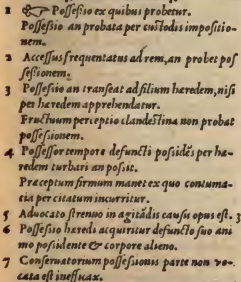 1 Possessio ex quibus probetur.
Possessio an probata per custodis impositio-
nem.
2 Accessus frequentatus ad rem, an probet pos
sessionem.
3 Possessio an transeat ad filium hæredem, nisi
per hæredem apprehendatur.
Fructuum perceptio clandestina non probat
possessionem.
4 Possessor tempore defuncti possidēs per hæ-
redem turbari an possit.
Præceptum firmum manet ex quo contuma-
tia per citatum incurritur.
5 Advocato strenuo in agitādis causis opus est. 3
6 Possessio hæredi acquiritur defuncto suo ani
mo possidente & corpore alieno.
7 Conservatorium possessionis parte non vo-
cata est inefficax.